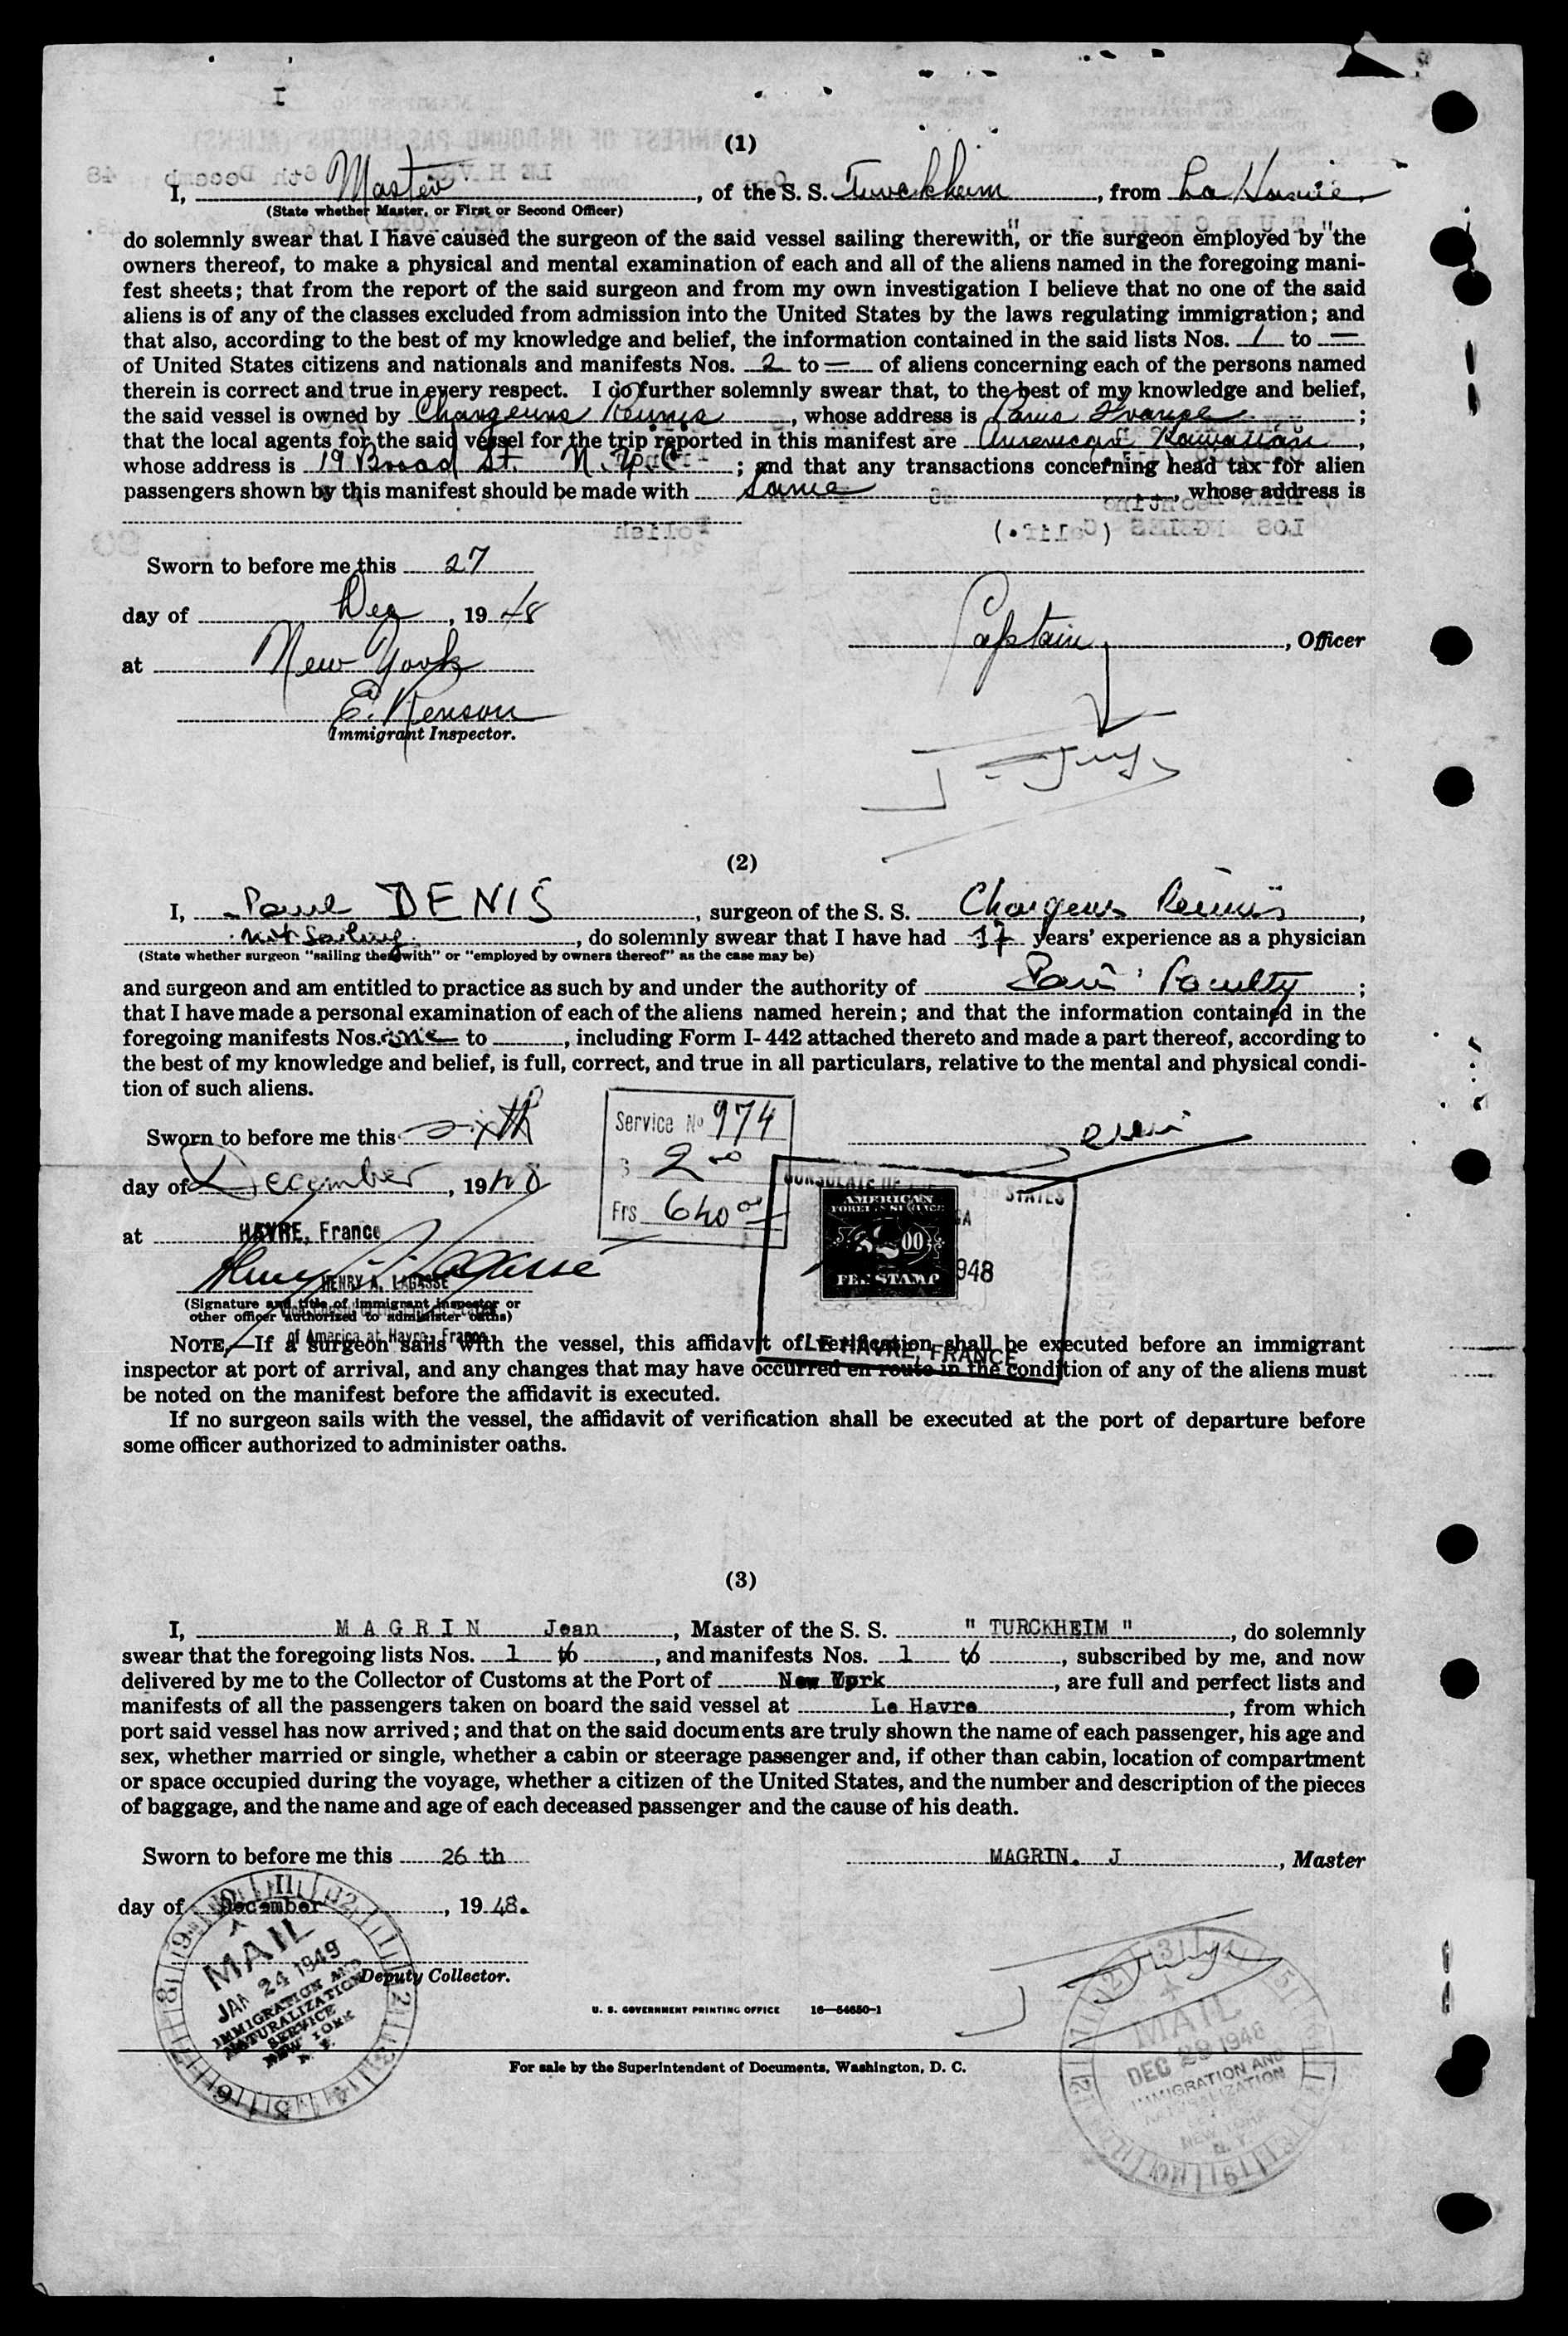 I
(1)
I, Master, of the S. S. Turckheim, from La Havre,
(State whether Master, or First or Second Officer)
do solemnly swear that I have caused the surgeon of the said vessel sailing therewith, or the surgeon employed by the
owners thereof, to make a physical and mental examination of each and all of the aliens named in the foregoing mani-
fest sheets; that from the report of the said surgeon and from my own investigation I believe that no one of the said
aliens is of any of the classes excluded from admission into the United States by the laws regulating immigration; and
that also, according to the best of my knowledge and belief, the information contained in the said lists Nos. 1 to —
of United States citizens and nationals and manifests Nos. 2 to — of aliens concerning each of the persons named
therein is correct and true in every respect. I do further solemnly swear that, to the best of my knowledge and belief,
the said vessel is owned by Chargeurs Reunis, whose address is Paris France;
that the local agents for the said vessel for the trip reported in this manifest are American Hawaiian,
whose address is 19 Broad St. N.Y.C; and that any transactions concerning head tax for alien
passengers shown by this manifest should be made with Same, whose address is
Sworn to before me this 27
day of Dec, 19 48
at New York
Captain, Officer
E. Renson
Immigrant Inspector.
(2)
I, Paul DENIS, surgeon of the S. S. Chargeurs Réunis,
not sailing, do solemnly swear that I have had 17 years' experience as a physician
(State whether surgeon "sailing therewith" or "employed by owners thereof" as the case may be)
and surgeon and am entitled to practice as such by and under the authority of Paris' Faculty;
that I have made a personal examination of each of the aliens named herein; and that the information contained in the
foregoing manifests Nos. one to , including Form I-442 attached thereto and made a part thereof, according to
the best of my knowledge and belief, is full, correct, and true in all particulars, relative to the mental and physical condi-
tion of such aliens.
Service No 974
$ 2.00
Frs 640.00
Sworn to before me this sixth
day of December, 1948
at HAVRE, France
CONSULATE OF THE STATES
AMERICAN
FOREIGN SERVICE
$2.00
FEE STAMP
948
LE HAVRE, FRANCE
Henry A. Lagasse
HENRY A. LAGASSE
(Signature and title of immigrant inspector or
other officer authorized to administer oaths)
of America at Havre, France
NOTE.—If a surgeon sails with the vessel, this affidavit of verification shall be executed before an immigrant
inspector at port of arrival, and any changes that may have occurred en route in the condition of any of the aliens must
be noted on the manifest before the affidavit is executed.
If no surgeon sails with the vessel, the affidavit of verification shall be executed at the port of departure before
some officer authorized to administer oaths.
(3)
I, MAGRIN Jean, Master of the S. S. " TURCKHEIM ", do solemnly
swear that the foregoing lists Nos. 1 to , and manifests Nos. 1 to , subscribed by me, and now
delivered by me to the Collector of Customs at the Port of New York, are full and perfect lists and
manifests of all the passengers taken on board the said vessel at Le Havre, from which
port said vessel has now arrived; and that on the said documents are truly shown the name of each passenger, his age and
sex, whether married or single, whether a cabin or steerage passenger and, if other than cabin, location of compartment
or space occupied during the voyage, whether a citizen of the United States, and the number and description of the pieces
of baggage, and the name and age of each deceased passenger and the cause of his death.
Sworn to before me this 26 th
MAGRIN. J, Master
day of December, 19 48.
Deputy Collector.
MAIL
JAN 24 1949
IMMIGRATION AND
NATURALIZATION
SERVICE
NEW YORK
N. Y.
MAIL
DEC 29 1948
IMMIGRATION AND
NATURALIZATION
NEW YORK
N. Y.
U. S. GOVERNMENT PRINTING OFFICE 16—54650-1
For sale by the Superintendent of Documents, Washington, D. C.